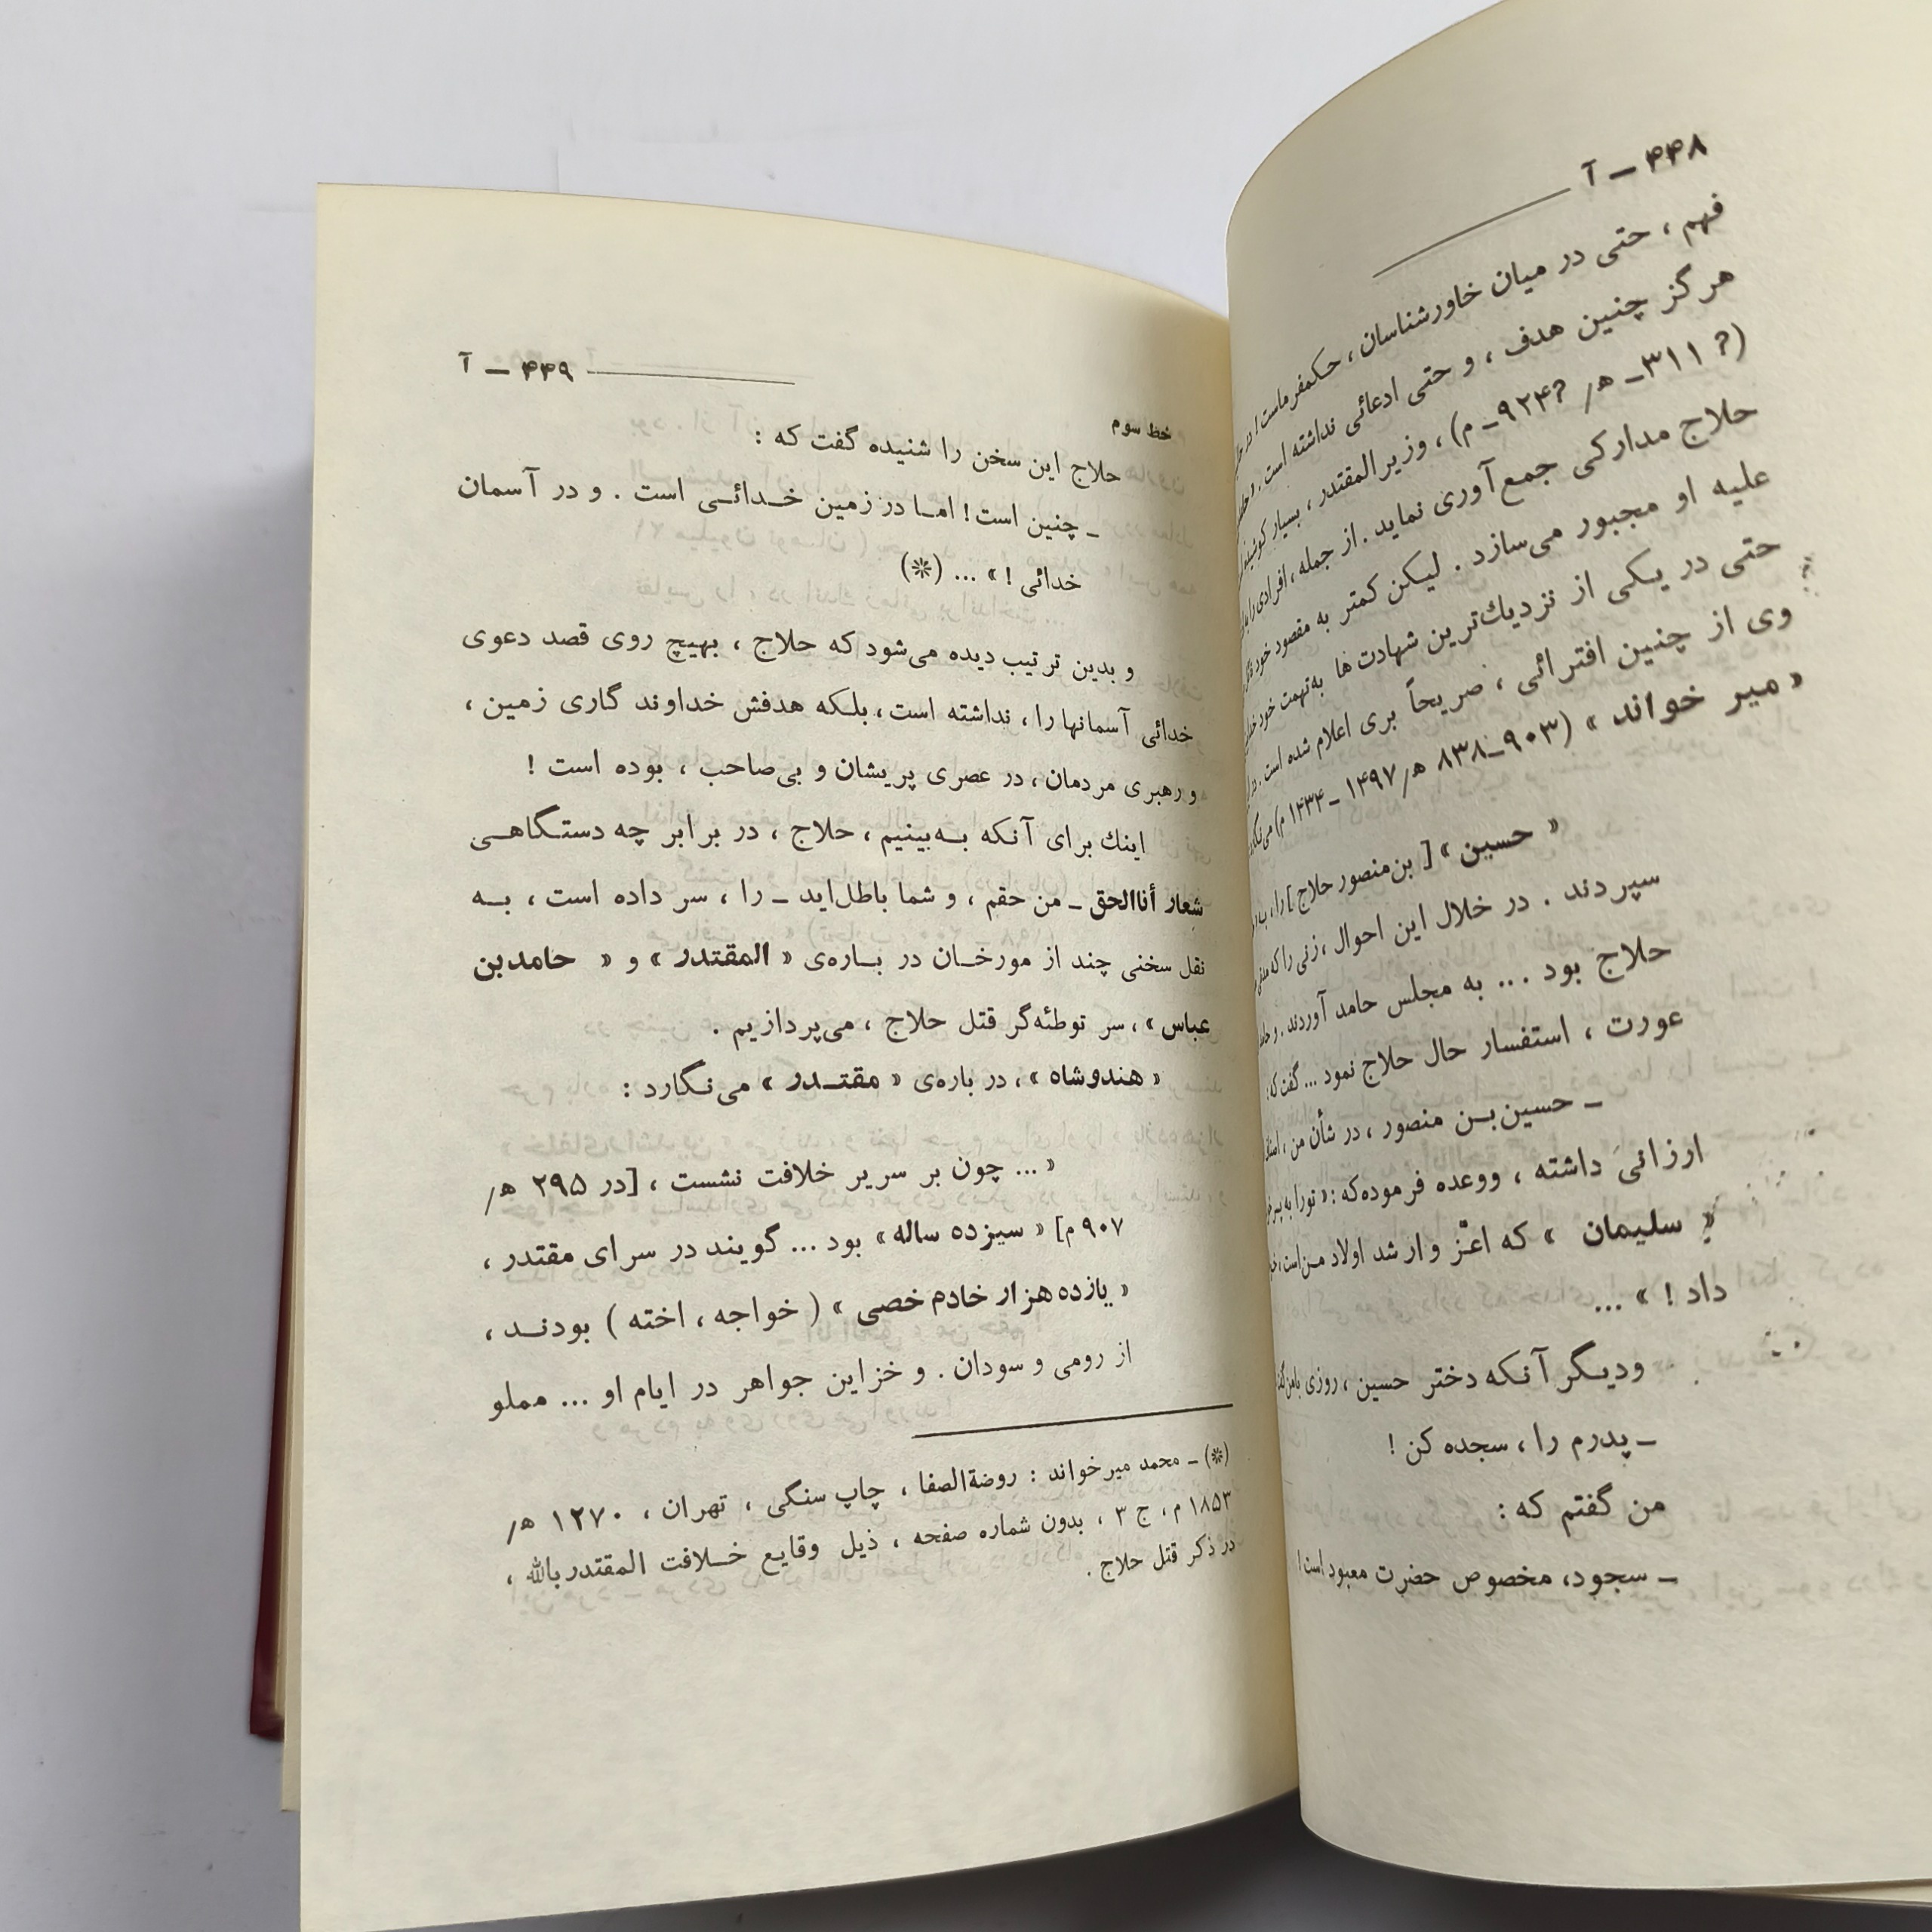 ۴۴۸ ـ آ
فهم ، حتی در میان خاورشناسان ، حکمفرماست !
هرگز چنین هدف ، و حتی ادعائی نداشته است .
(? ۳۱۱ـ ه‍/ ?۹۲۴ـ م) ، وزیرالمقتدر ، بسیار
حلاج مدارکی جمع‌آوری نماید . از جمله ، افرادی را
علیه او مجبور می‌سازد . لیکن کمتر به مقصود خود
حتی در یکی از نزدیك‌ترین شهادت ها به‌تهمت خود
وی از چنین افترائی ، صریحاً بری اعلام شده است .
« میر خواند » (۹۰۳ـ۸۳۸ ه‍/۱۴۹۷ ـ ۱۴۳۴ م)
« حسین » [ بن‌منصور حلاج ] را ،
سپردند . در خلال این احوال ، زنی را که
حلاج بود ... به مجلس حامد آوردند .
عورت ، استفسار حال حلاج نمود ... گفت که :
ـ حسین‌بـن منصور ، در شأن من ،
ارزائی داشته ، ووعده فرموده‌که : « تورا به
« سلیمان » که اعـّز و ارشد اولاد مـن‌است ،
داد ! » ...
ودیـگر آنـکه دختر حسین ، روزی
ـ پدرم را ، سجده کن !
من گفتم که :
ـ سجود، مخصوص حضرت معبود است !
۴۴۹ ـ آ
خط سوم
حلاج این سخن را شنیده گفت که :
ـ چنین است! امـا در زمین خـدائـی است . و در آسمان
خدائی ! » ... (✻)
و بدین ترتیب دیده می‌شود که حلاج ، بهیچ روی قصد دعوی
خدائی آسمانها را ، نداشته است ، بلـکه هدفش خداوند گاری زمین ،
و رهبری مردمان ، در عصری پریشان و بی‌صاحب ، بوده است !
اینك برای آنکه بـه‌بینیم ، حلاج ، در برابر چه دستـگاهـی
شعار أناالحق ـ من حقم ، و شما باطل‌اید ـ را ، سر داده است ، بـه
نقل سخنی چند از مورخـان در بـاره‌ی « المقتدر » و « حامدبن
عباس » ، سر توطئه‌گر قتل حلاج ، می‌پردازیم .
« هندوشاه » ، در باره‌ی « مقتـدر » می‌نـگارد :
« ... چون بر سریر خلافت نشست ، [در ۲۹۵ ه‍/
۹۰۷ م] « سیزده ساله » بود ... گویند در سرای مقتدر ،
« یازده هزار خادم خصی » ( خواجه ، اخته ) بودنـد ،
از رومی و سودان . و خزاین جواهر در ایام او ... مملو
(✻) ـ محمد میرخواند : روضةالصفا ، چاپ سنگی ، تهران ، ۱۲۷۰ ه‍/
۱۸۵۳ م ، ج ۳ ، بدون شماره صفحه ، ذیل وقایع خـلافت المقتدربالله ،
در ذکر قتل حلاج .